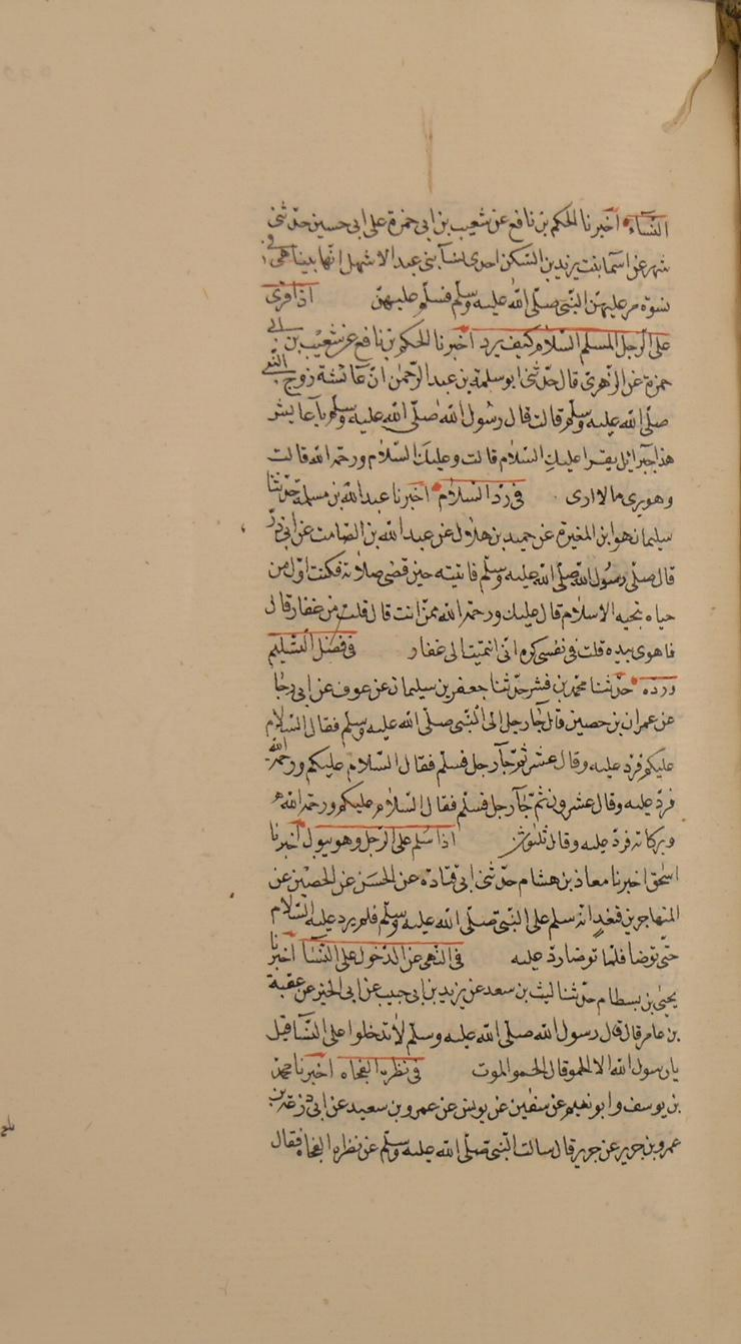 النسآء اخبرنا الحكم بن نافع عن شعيب بن ابى حمزة على ابى حسين حدّثنى
شهر عن اسمآ بنت يزيد بن السكن احدى نسآ بنى عبد الاشهل انها بيناهى فى
نسوة مر عليهن النبى صلّى الله عليه وسلّم فسلّم عليهن اذا قرى
على الرجل المسلم السّلام كيف يرد اخبرنا الحكم بن نافع عن شعيب بن ابى
حمزة عن الزهرى قال حدّثنى ابو سلمة بن عبد الرّحمن انّ عائشة زوج النبى
صلّى الله عليه وسلّم قالت قال رسول الله صلّى الله عليه وسلّم يا عايش
هذا جبرائيل يقرا عليك السّلام قالت وعليك السّلام ورحمة الله قالت
وهو يرى مالا ارى فى ردّ السّلام اخبرنا عبد الله بن مسلمة حدّثنا
سليمان هو ابن المغيرة عن حميد بن هلال عن عبد الله بن الصامت عن ابى ذرّ
قال صلّى رسول الله صلّى الله عليه وسلّم فاتيته حين قضى صلاته فكنت اوّل من
حياه بتحيه الاسلام قال عليك ورحمة الله ممن انت قال قلت من غفار قال
فاهوى بيده قلت فى نفسى كره انى انتميت الى غفار فى فضل التسليم
وردّه حدّثنا محمّد بن حدّثنا جعفر بن سليمان عن عوف عن ابى رجا
عن عمران بن حصين قال جآ رجل الى النّبى صلّى الله عليه وسلم فقال السّلام
عليكم فردّ عليه وقال عشر ثم جآ رجل فسلّم فقال السّلام عليكم ورحمة الله
فردّ عليه وقال عشرون ثم جآ رجل فسلّم فقال السّلام عليكم ورحمة الله
وبركاته فردّ عليه وقال ثلثون اذا سلم على الرّجل وهو يبول اخبرنا
اسحق اخبرنا معاذ بن هشام حدّثنى ابى قتادة عن الحسن عن الحصين عن
المهاجر بن قنفد انه سلم على النّبى صلّى الله عليه وسلّم فلم يرد عليه السّلام
حتى توضا فلما توضا ردّ عليه فى النهى عن الدخول على النّسآ اخبرنا
يحيى بن بسطام حدّثنا ليث بن سعد عن يزيد بن ابى حبيب عن ابى الخير عن عقبة
بن عامر قال قال رسول الله صلى الله عليه وسلم لا تدخلوا على النّسآ قيل
يا رسول الله الا الحمو قال الحمو الموت فى نظرة الفجاة اخبرنا محمّد
بن يوسف وابو نعيم عن سفين عن يونس عن عمرو بن سعيد عن ابى زرعة بن
عمرو بن جرير عن جرير قال سالت النّبى صلّى الله عليه وسلّم عن نظره الفجاة فقال